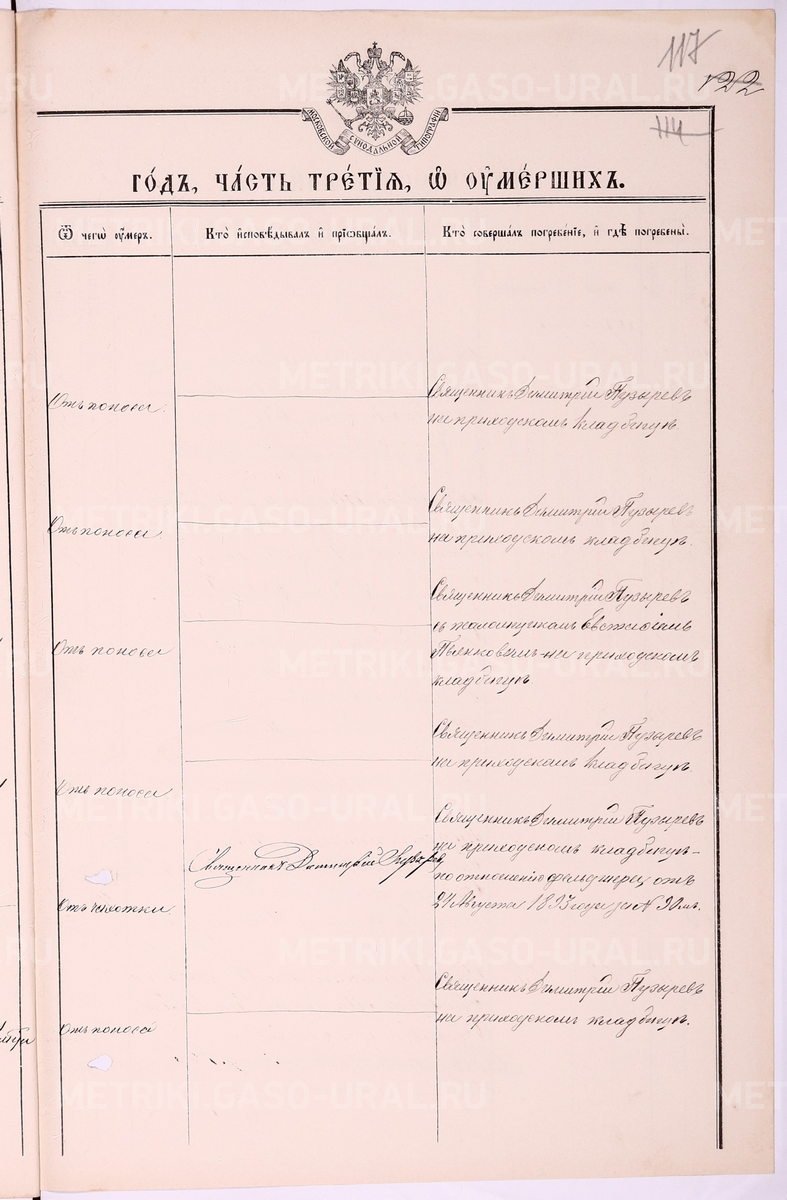 117
122
114
МОСКОВСКОЙ СѴНОДАЛЬНОЙ ТИПОГРАФІИ
ГО́ДЪ, ЧА́СТЬ ТРЕ́ТІѦ, Ѡ ОУ҆МЕ́РШИХЪ.
Ѿ чегѡ̀ оу҆́меръ.
Кто̀ и҆сповѣ́дывалъ и҆ прїѡбща́лъ.
Кто̀ соверша́лъ погребе́нїе, и҆ гдѣ̀ погребены̀.
Отъ поноса.
Священникъ Димитрій Пузыревъ
на приходскомъ кладбищѣ
Отъ поноса
Священникъ Димитрій Пузыревъ
на приходскомъ кладбищѣ.
Отъ поноса
Священникъ Димитрій Пузыревъ
съ псаломщикомъ Евсигніемъ
Пьянковымъ на приходскомъ
кладбищѣ
Отъ поноса
Священникъ Димитрій Пузыревъ
на приходскомъ кладбищѣ.
Отъ чахотки
Священникъ Димитрій Пузыревъ
Священникъ Димитрій Пузыревъ
на приходскомъ кладбищѣ –
по отношенію фельдшера, отъ
24 Августа 1893 года за №
Отъ поноса
Священникъ Димитрій Пузыревъ
на приходскомъ кладбищѣ.
METRIKI.GASO-URAL.RU